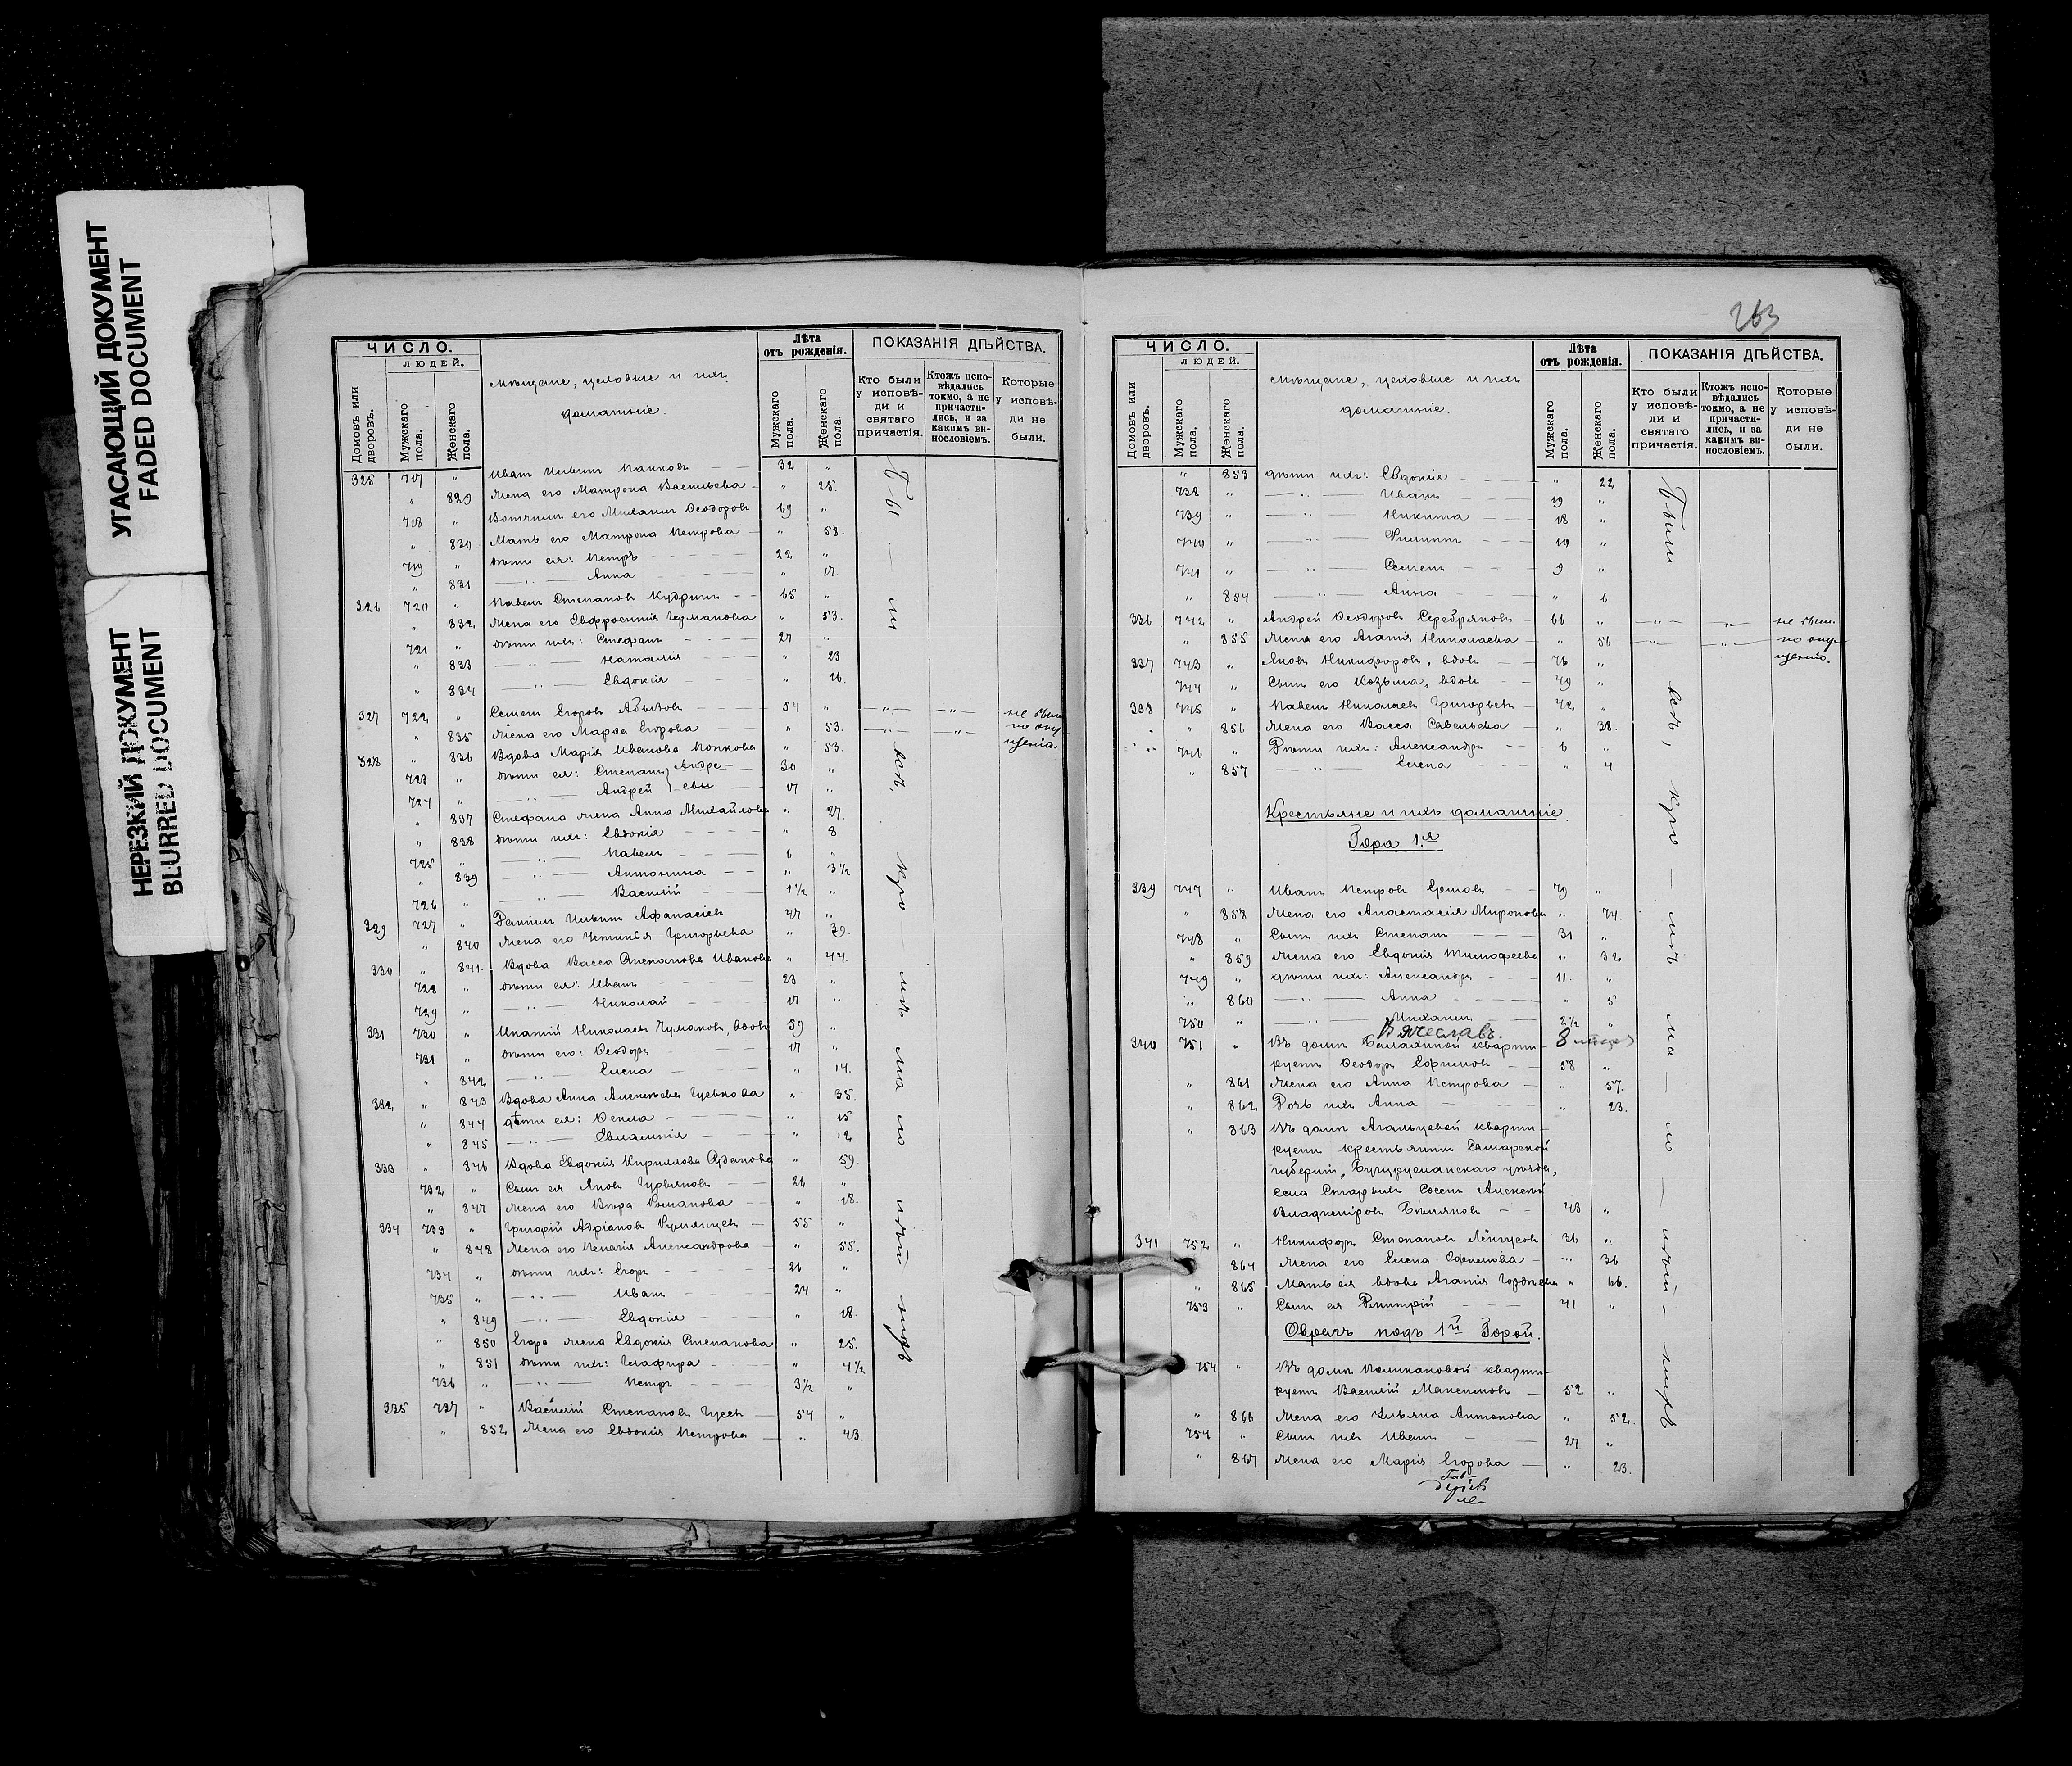 УГАСАЮЩИЙ ДОКУМЕНТ
FADED DOCUMENT
НЕРЕЗКИЙ ДОКУМЕНТ
BLURRED DOCUMENT
ЧИСЛО.
ЛЮДЕЙ.
Домовъ или дворовъ.
Мужскаго пола.
Женскаго пола.
Мѣщане, цеховые и ихъ
домашніе.
Лѣта
отъ рожденія.
Мужскаго пола.
Женскаго пола.
ПОКАЗАНІЯ ДѢЙСТВА.
Кто были у исповѣ-ди и святаго причастія.
Ктожъ испо-вѣдались токмо, а не причасти-лись, и за какимъ ви-нословіемъ.
Которые у исповѣ-ди не были.
325 717 " Иванъ Ильинъ 32 "
" 829 Жена его Матрона Васильева " 25.
718 " Вотчимъ его Михаилъ Ѳеодоровъ 69 "
" 830 Мать его Матрона Петрова " 58.
719 " дѣти ея: Петръ 22 "
" 831 Анна " 17.
326 720 " Павелъ Степановъ Кудринъ 65 "
" 832 Жена его Евфросинія Германова " 53.
721 " дѣти ихъ: Стефанъ 27 "
" 833 Наталія " 23
" 834 Евдокія " 16.
327 722 " Семенъ Егоровъ 54 " не были
" 835 Жена его Марѳа Егорова " 53. по опу
328 " 836 Вдова Марія Иванова Попкова " 53. щенію.
723 " дѣти ея: Степанъ Андре- 30 "
724 " Андрей евы 17 "
" 837 Стефана жена Анна Михайлова " 27.
" 838 дѣти ихъ: Евдокія " 8
725 " Павелъ 6 "
" 839 Антонина " 3½
726 " Василій 1½ "
329 727 " Даніилъ Ильинъ Афанасіевъ 47 "
" 840 Жена его Григорьева " 39.
330 " 841. Вдова Васса Степанова Иванова " 44.
728 " дѣти ея: Иванъ 23 "
729 " Николай 17 "
331 730 " Ипатій Николаевъ Чумаковъ, вдовъ 59 "
731 " дѣти его: Ѳеодоръ 17 "
" 842 Елена " 14.
332 " 843 Вдова Анна Алексѣева Гуськова " 35.
" 844 дѣти ея: Ѳекла " 15
" 845 Евлампія " 12
333 " 846 Вдова Евдокія Кириллова " 59.
732 " Сынъ ея Яковъ Гурьяновъ 26 "
" 847 Жена его Вѣра Романова " 18.
334 733 " Григорій Адріановъ Румянцевъ 55 "
" 848 Жена его Пелагія Александрова " 55.
734 " дѣти ихъ: Егоръ 26 "
735 " Иванъ 24 "
" 849 Евдокія " 18.
" 850 Егора жена Евдокія Степанова " 25.
" 851 дѣти ихъ: Глафира " 4½
736 " Петръ 3½ "
335 737 " Василій Степановъ Гусевъ 54 "
" 852 Жена его Евдокія Петрова " 43.
263
ЧИСЛО.
ЛЮДЕЙ.
Домовъ или дворовъ.
Мужскаго пола.
Женскаго пола.
Мѣщане, цеховые и ихъ
домашніе.
Лѣта
отъ рожденія.
Мужскаго пола.
Женскаго пола.
ПОКАЗАНІЯ ДѢЙСТВА.
Кто были у исповѣ-ди и святаго причастія.
Ктожъ испо-вѣдались токмо, а не причасти-лись, и за какимъ ви-нословіемъ.
Которые у исповѣ-ди не были.
Были
" 853 дѣти ихъ: Евдокія " 22
738 " Иванъ 19 "
739 " Никита 18 "
740 " Филиппъ 10 "
741 " Семенъ 9 "
" 854 Анна " 6
336 742 " Андрей Ѳеодоровъ Серебряковъ 66 " не были
" 855 Жена его Агапія Николаева " 56 по опу
337 743 " Яковъ Никифоровъ, вдовъ 76 " щенію.
744 " Сынъ его Козьма, вдовъ 49 "
338 745 " Павелъ Николаевъ Григорьевъ 42 "
" 856 Жена его Васса Савельева " 38.
746 " Дѣти ихъ: Александръ 6 "
" 857 Елена " 4
Крестьяне и ихъ домашніе.
Гора 1.я
339 747 " Иванъ Петровъ 79 "
" 858 Жена его Анастасія Миронова " 74.
748 " Сынъ ихъ Степанъ 31 "
" 859 Жена его Евдокія Тимофеева " 32
749 " дѣти ихъ: Александръ 11. "
" 860 Анна " 5
750 " Михаилъ 2½ "
Вячеславъ. 8
340 751 " Въ домѣ кварти-
руетъ Ѳеодоръ Ефимовъ 58 "
" 861 Жена его Анна Петрова " 57.
" 862 Дочь ихъ Анна " 23.
" 863 Въ домѣ Агальцевой кварти-
руетъ крестьянинъ Самарской
губерніи, Бугурусланскаго уѣзда,
села Старыхъ Сосенъ Алексѣй
Владиміровъ 43 "
341 752 " Никифоръ Степановъ 36 "
864 Жена его Елена " 36
" 865 Мать ея вдова Агапія " 66.
753 " Сынъ ея Димитрій 41 "
Оврагъ подъ 1й Горой.
754 " Въ домѣ Поликановой кварти-
руетъ Василій Максимовъ 52 "
" 866 Жена его Ульяна Антонова " 52.
754 " Сынъ ихъ Иванъ 27 "
" 867 Жена его Марія Егорова " 23.